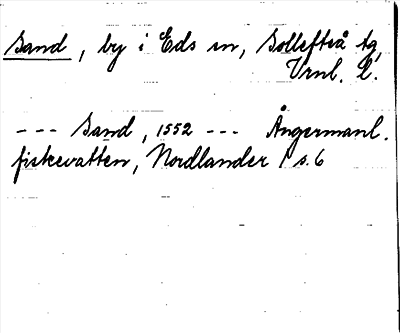 Sand, by i Eds sn, Sollefteå tg,
Vrnl. l.
--- Sand, 1552 --- Ångermanl.
fiskevatten, Nordlander 1 s. 6